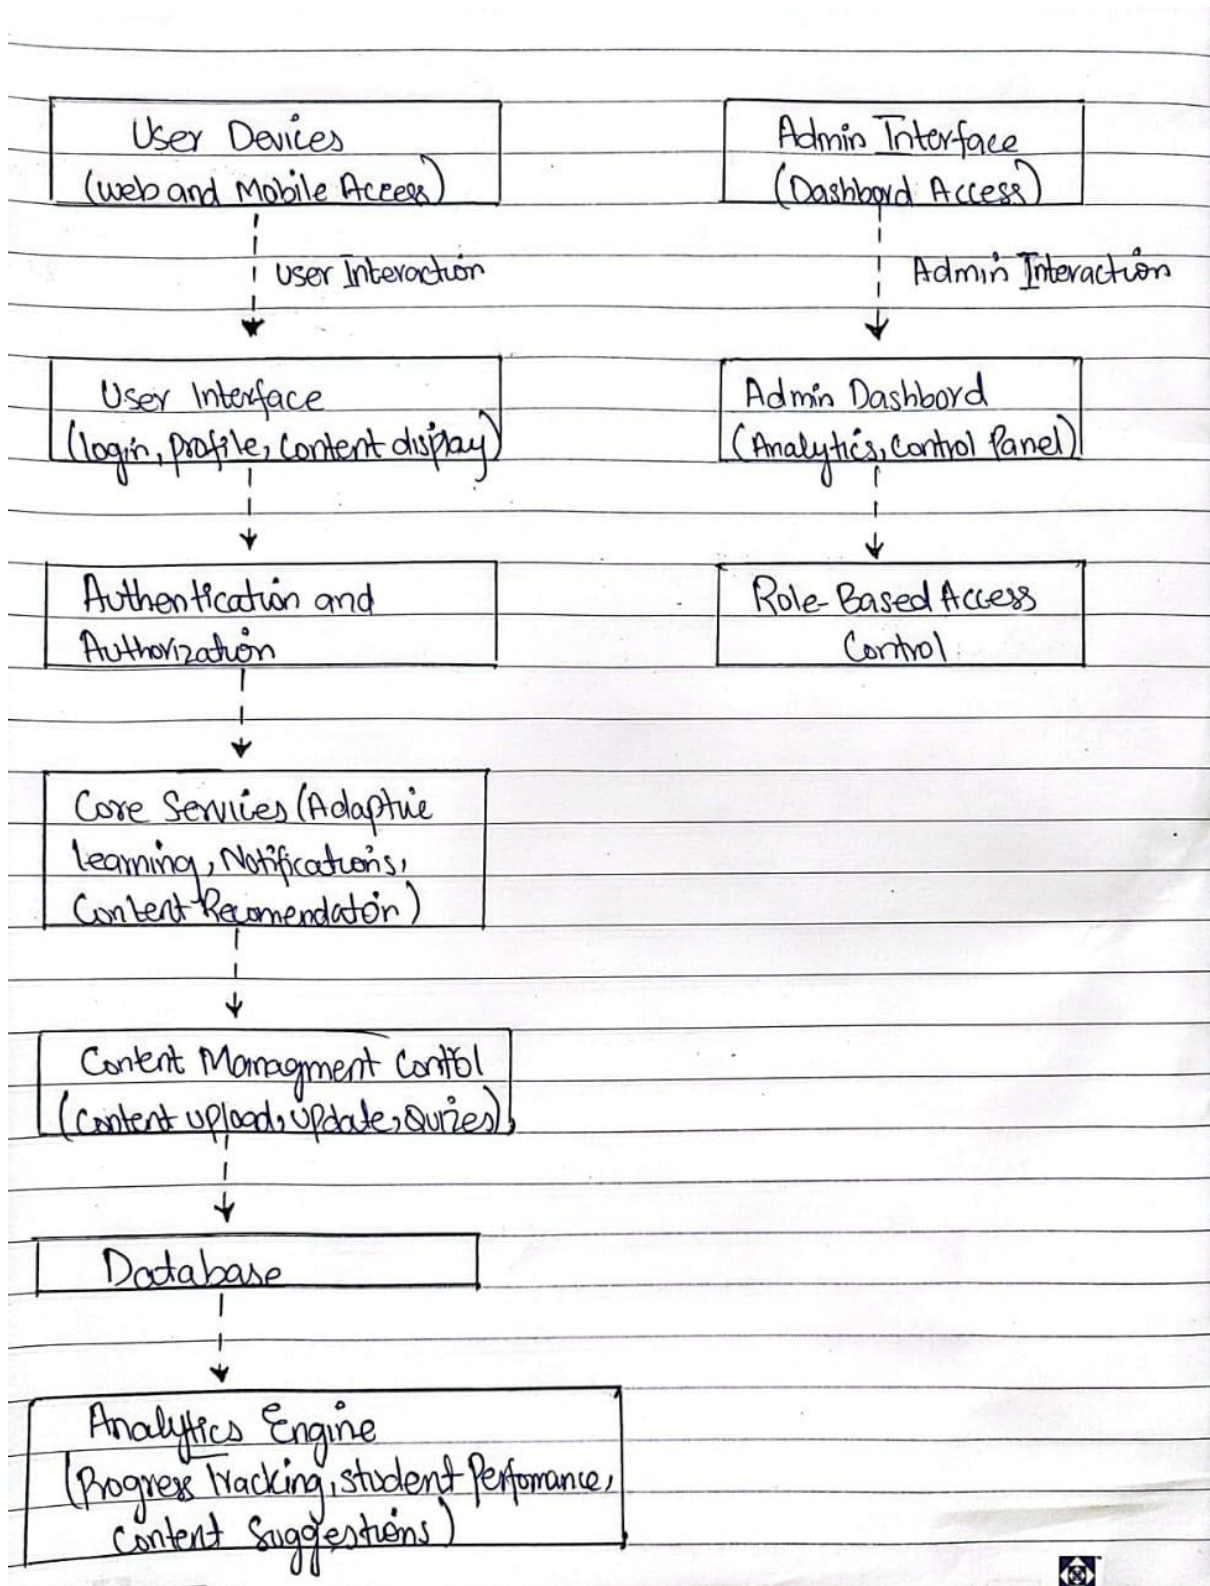 User Devices
(web and Mobile Access)
User Interaction
User Interface
(login, profile, Content display)
Authentication and
Authorization
Core Services (Adaptive
learning, Notifications,
Content Recomendation)
Content Managment Control
(Content upload, Update, Quizes)
Database
Analytics Engine
(Progress Tracking, student Perfomance,
Content Suggestions)
Admin Interface
(Dashbord Access)
Admin Interaction
Admin Dashbord
(Analytics, Control Panel)
Role-Based Access
Control